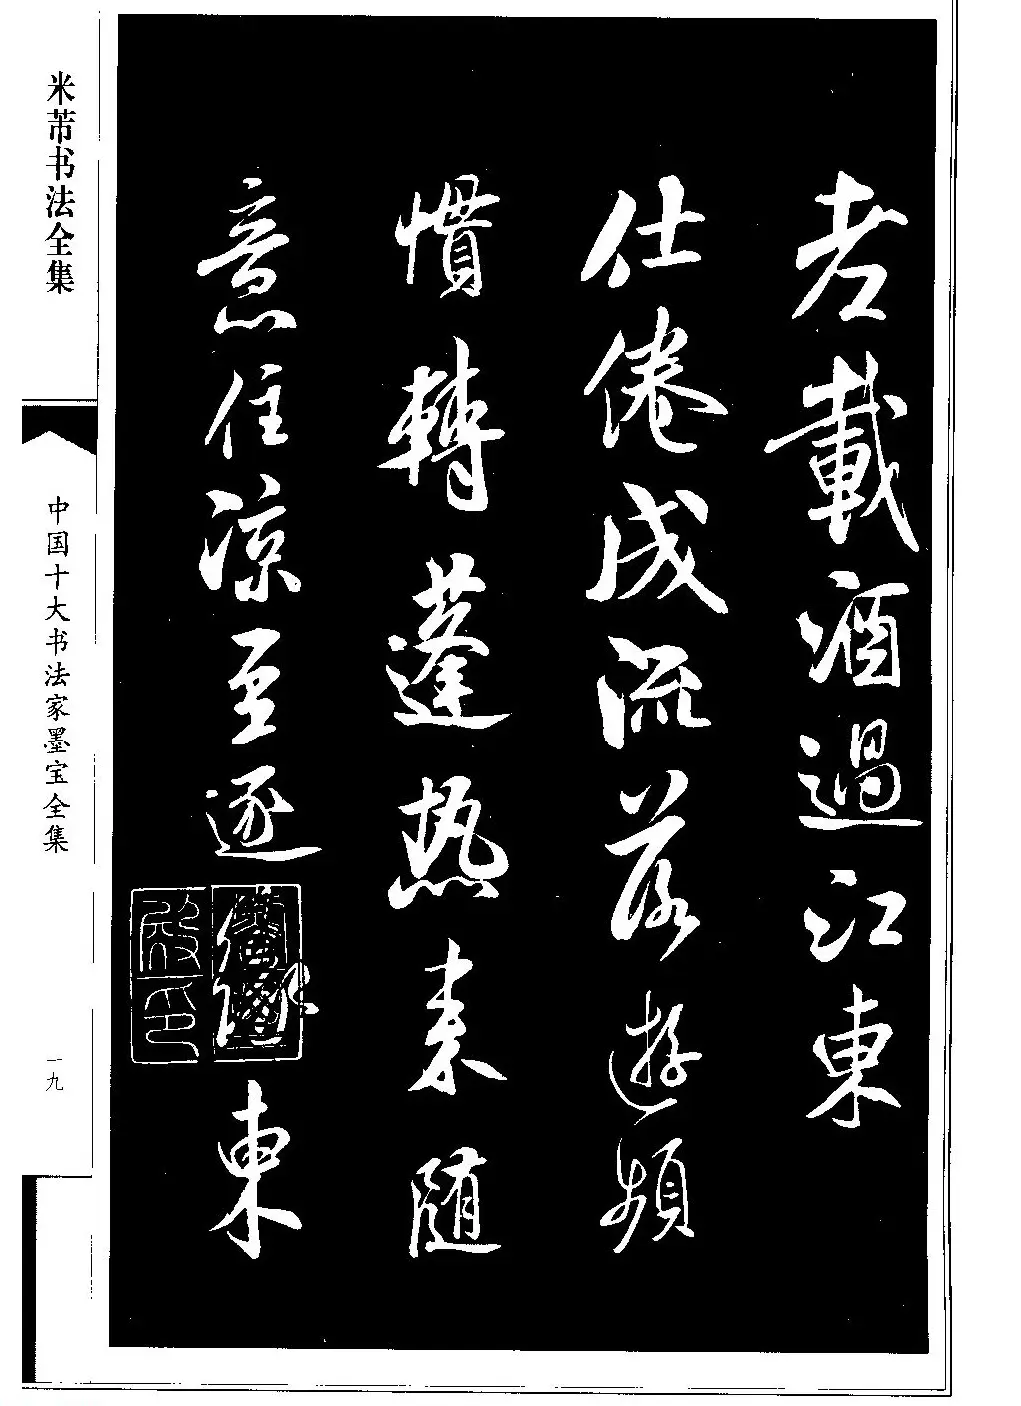 老載酒過江東
仕倦成流落遊頻
慣轉蓬热来随
意住凉至逐
東
米芾书法全集
中国十大书法家墨宝全集
一九